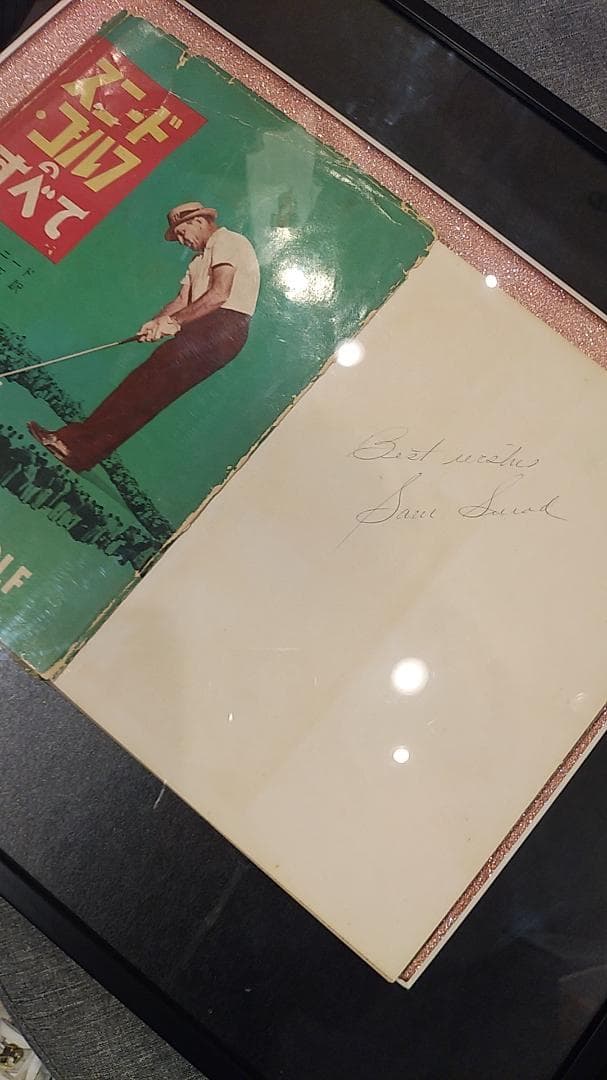 スニード
・ゴルフ
のすべて
ニード
訳
OLF
Best wishes
Sam Snead